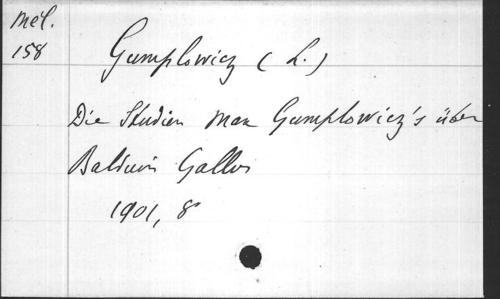 Mél.
158
Gumplowicz (L.)
Die Studien Max Gumplowicz's über
Balduin Gallus
1901, 8°